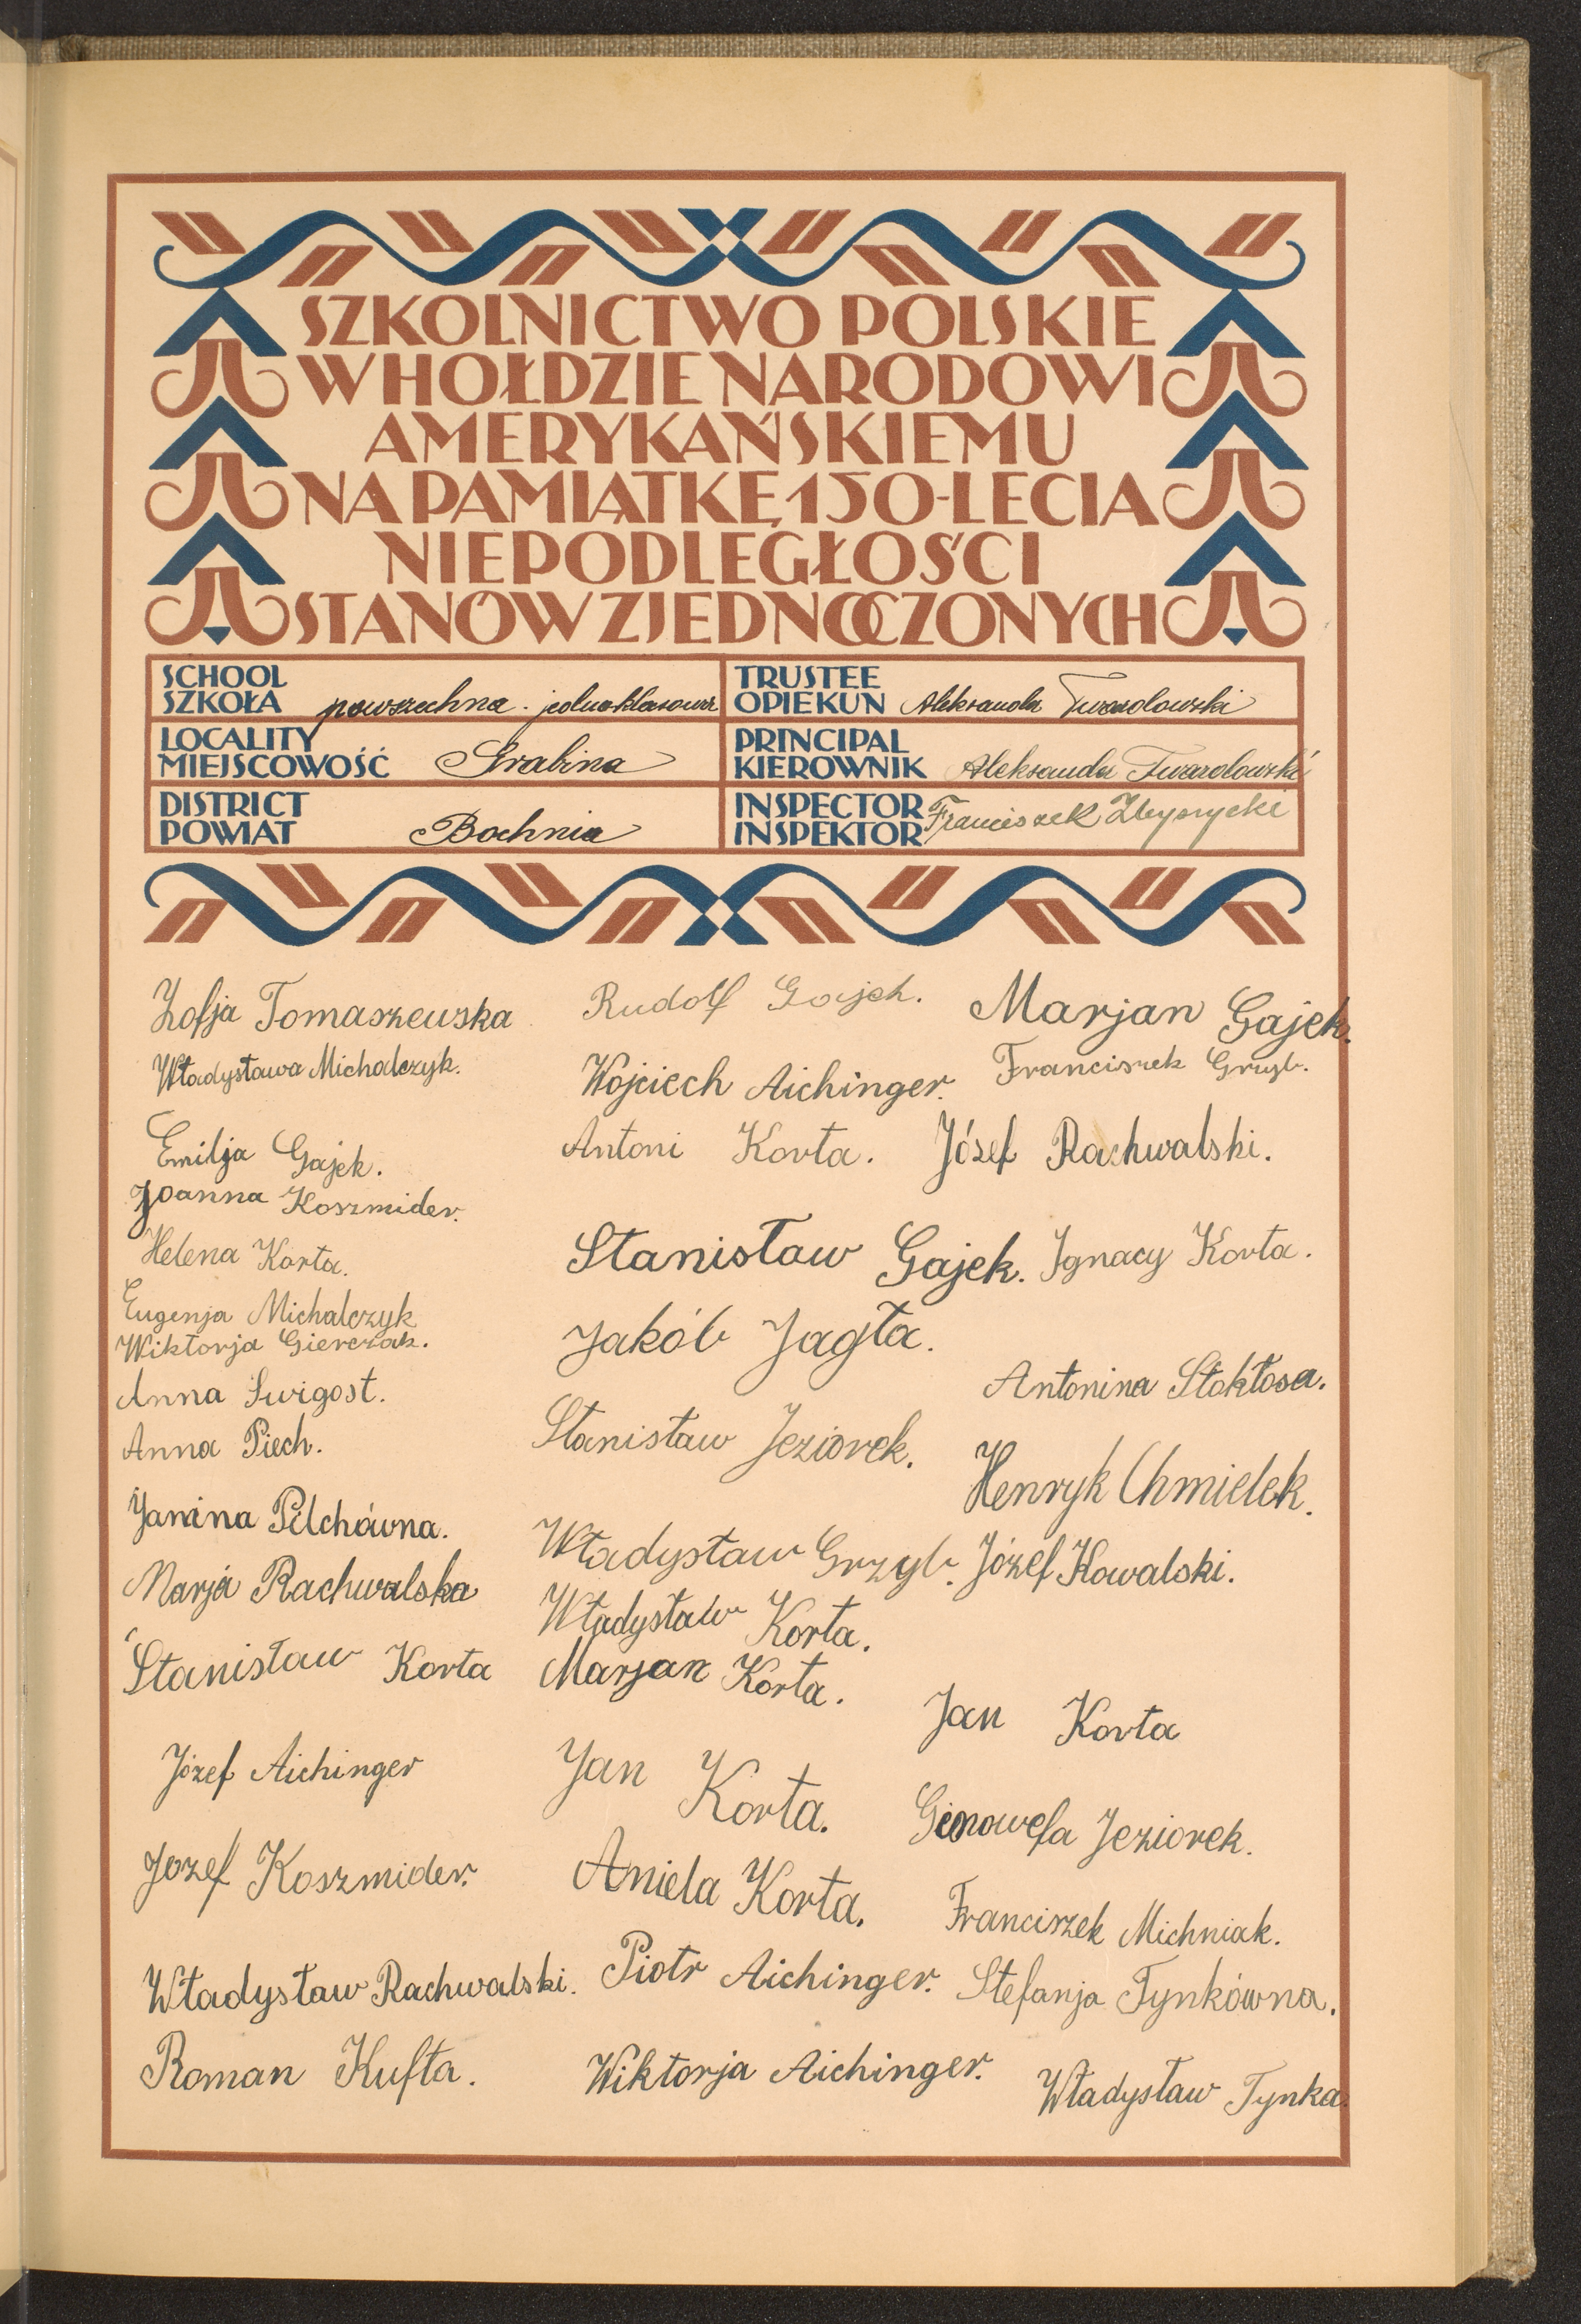 SZKOLNICTWO POLSKIE
W HOŁDZIE NARODOWI
AMERYKAŃSKIEMU
NA PAMIĄTKĘ 150-LECIA
NIEPODLEGŁOŚCI
STANÓW ZJEDNOCZONYCH
SCHOOL
SZKOŁA powszechna - jednoklasowa
TRUSTEE
OPIEKUN Aleksander Twardowski
LOCALITY
MIEJSCOWOŚĆ Grabina
PRINCIPAL
KIEROWNIK Aleksander Twardowski
DISTRICT
POWIAT Bochnia
INSPECTOR
INSPEKTOR Franciszek
Zofja Tomaszewska
Władysława Michalczyk.
Emilja Gajek.
Joanna Koszmider.
Helena Korta.
Eugenja Michalczyk
Wiktorja Gierczak.
Anna Świgost.
Anna Piech.
Janina Pilchówna.
Marja Rachwalska
Stanisław Korta
Józef Aichinger
Jozef Koszmider.
Władysław Rachwalski.
Roman Kufta.
Rudolf Gajek.
Wojciech Aichinger.
Antoni Korta.
Stanisław Gajek.
Jakób Jagła.
Stanisław Jeziorek.
Władysław Grzyb.
Władysław Korta.
Marjan Korta.
Jan Korta.
Aniela Korta.
Piotr Aichinger.
Wiktorja Aichinger.
Marjan Gajek.
Franciszek Grzyb.
Józef Rachwalski.
Ignacy Korta.
Antonina Stokłosa.
Henryk Chmielek.
Józef Kowalski.
Jan Korta
Genowefa Jeziorek.
Franciszek Michniak.
Stefanja Tynkówna.
Władysław Tynka.